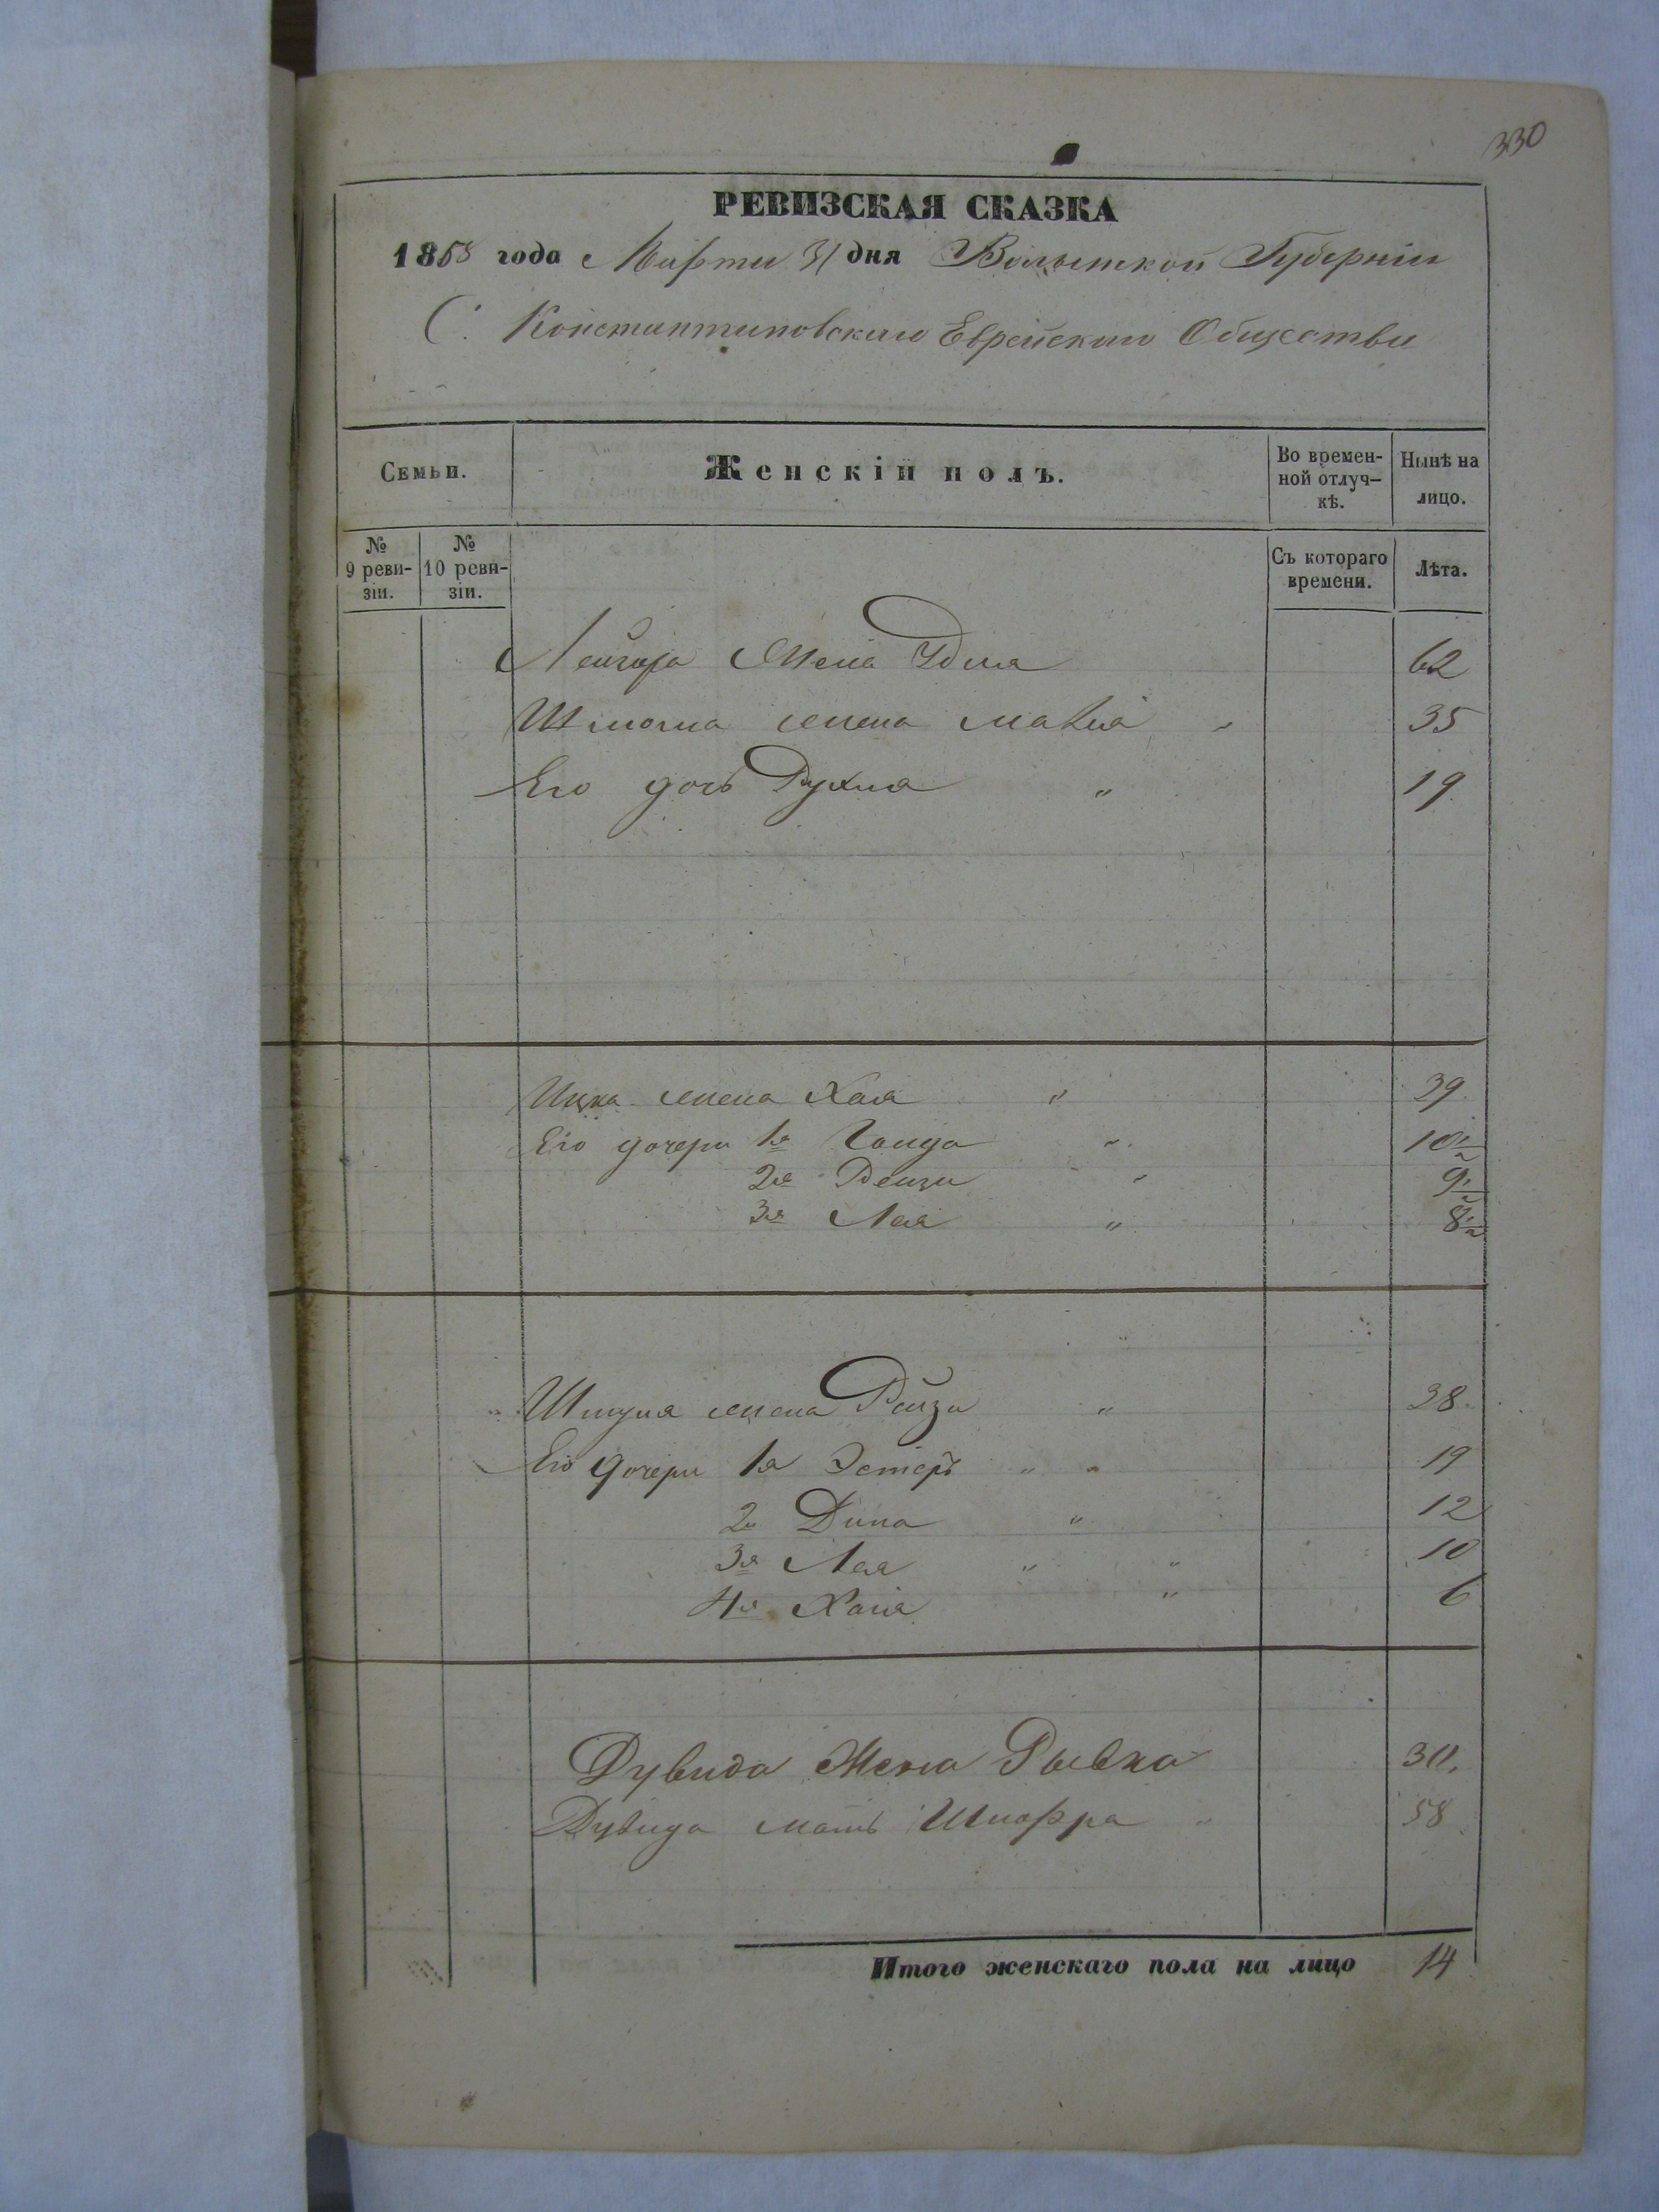 330
РЕВИЗСКАЯ СКАЗКА
1858 года Марта 31 дня Волынской Губерніи
С. Константиновскаго Еврейскаго Общества
Семьи.
Женскій полъ.
Во времен-
ной отлуч-
кѣ.
Нынѣ на
лицо.
№
9 реви-
зіи.
№
10 реви-
зіи.
Съ котораго
времени.
Лѣта.
Лейзора Жена Удля 62
жена 35
Его дочь Рухля " 19
Ицка жена Хая " 39
Его дочери 1я " 10½
2я Рейзи " 9½
3я Лея " 8½
жена Рейзи " 38
Его дочери 1я Эстеръ " " 19
2я Дина " 12
3я Лея " " 10
4я Хана " 6
Дувида Жена Рывка 30.
Дувида мать Шифра " 58
Итого женскаго пола на лицо 14